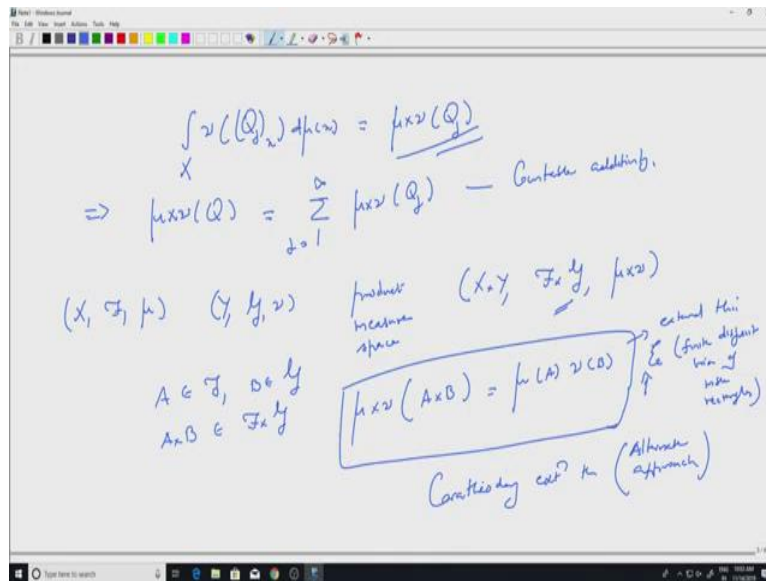 Note1 - Windows Journal
File Edit View Insert Actions Tools Help
∫_X ν((Q_j)_x) dμ(x) = μ×ν(Q_j)
⇒ μ×ν(Q) = ∑_{j=1}^∞ μ×ν(Q_j) — Countable additivity.
(X, F, μ) (Y, G, ν) product measure space (X×Y, F×G, μ×ν)
A ∈ F, B ∈ G
A×B ∈ F×G
μ×ν(A×B) = μ(A) ν(B)
→ extend this
E (finite disjoint
union of
rectangles)
Caratheodory extⁿ th (Alternate
approach)
Type here to search